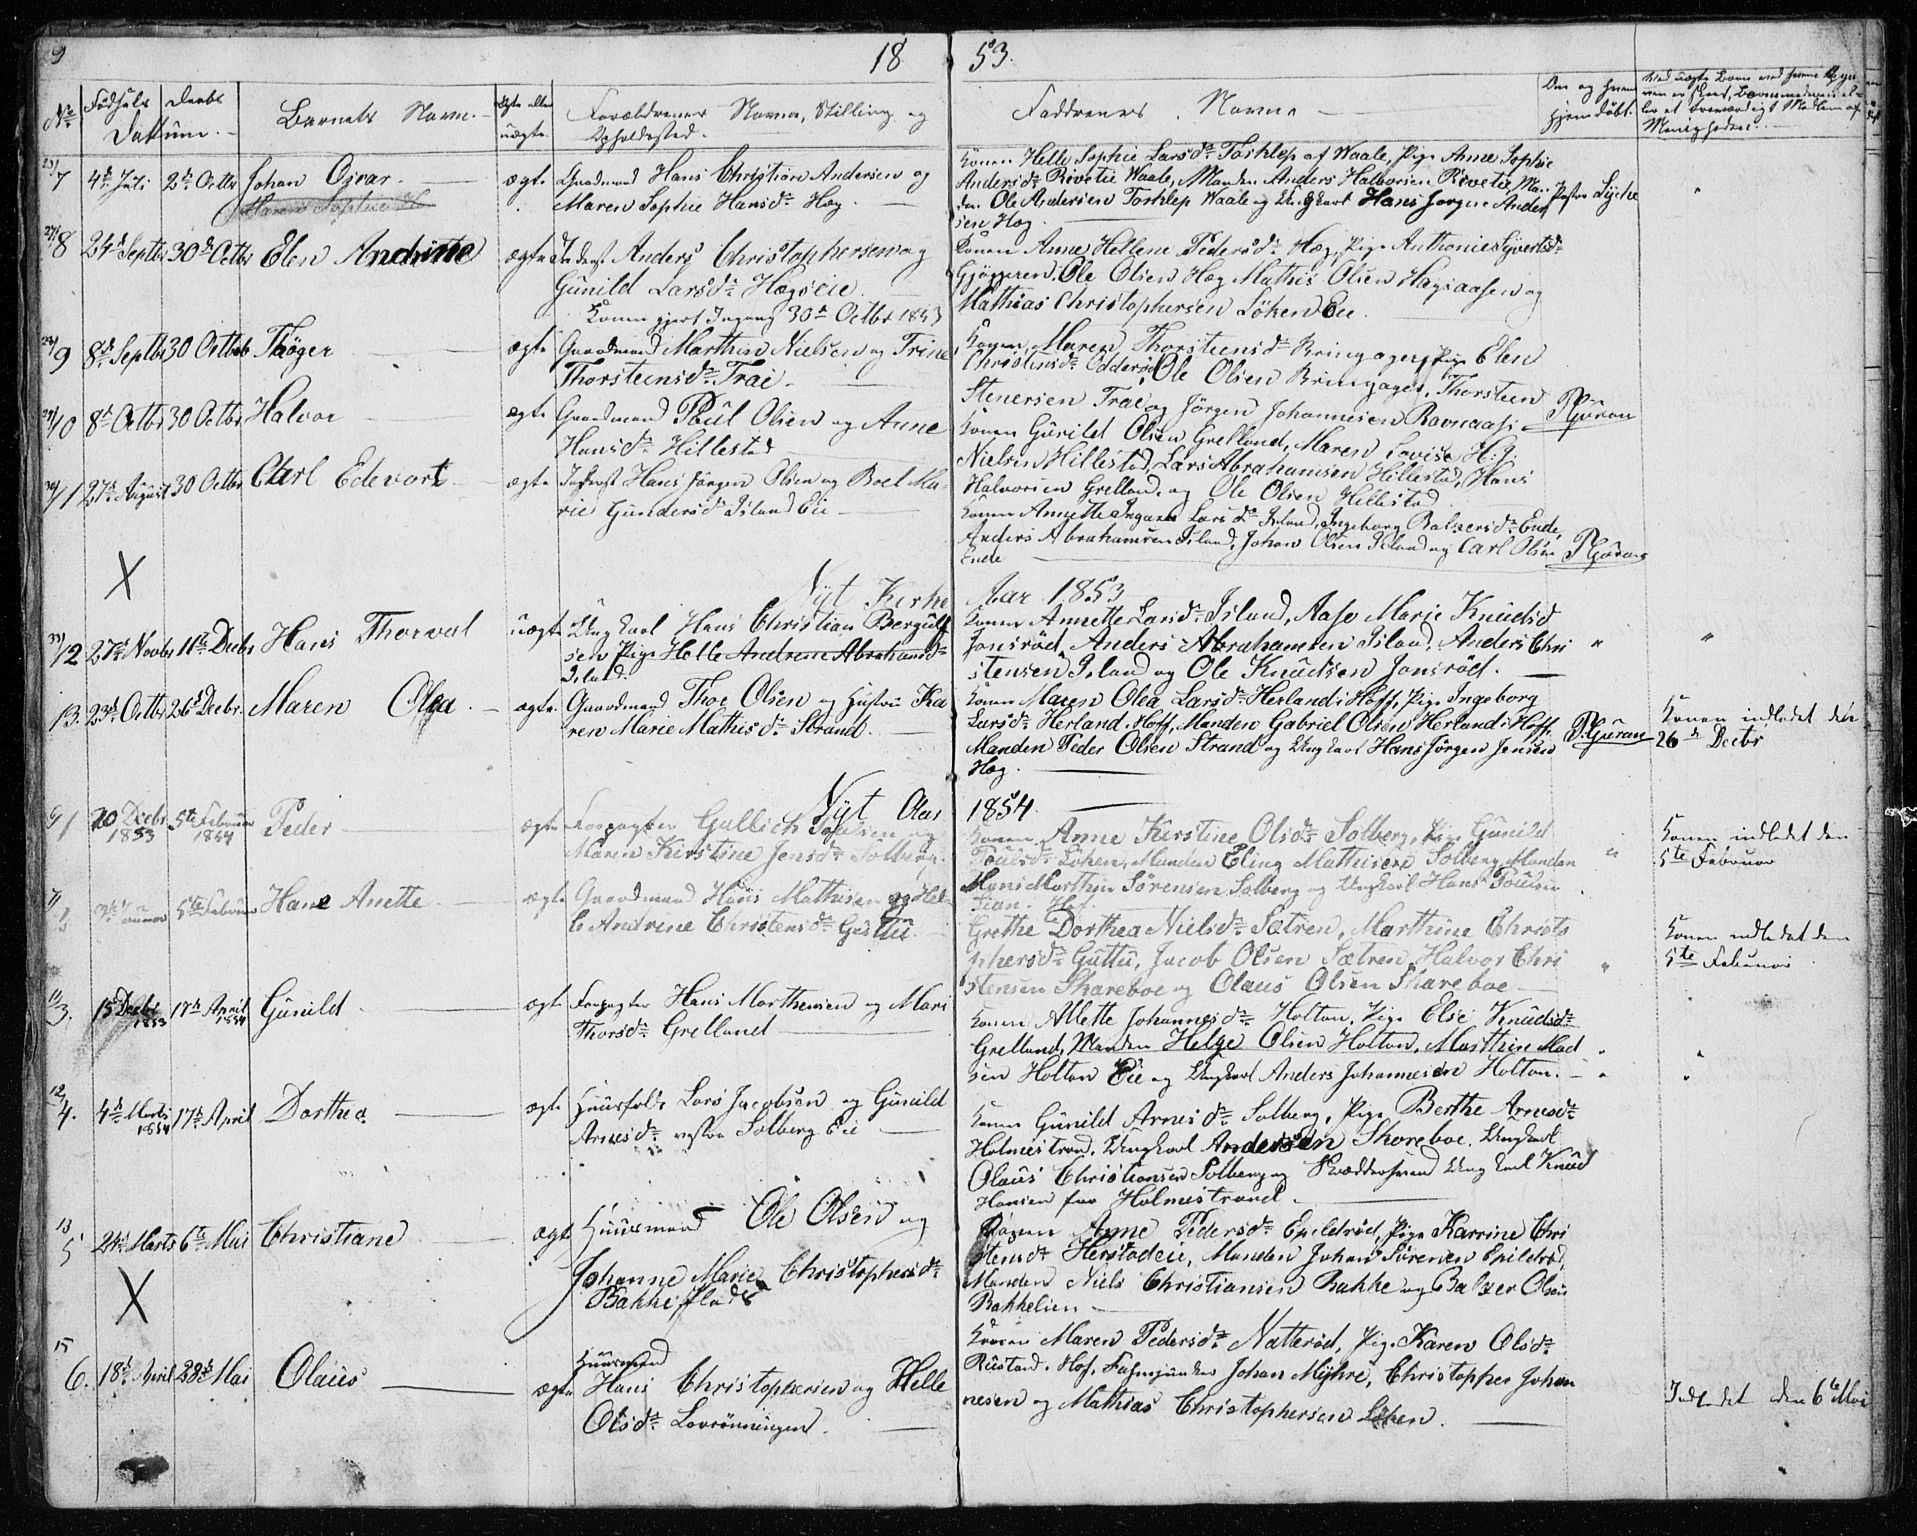 9
18 53.
No Fødsels Daabs Datum. Barnets Navn. Egte eller uægte. Forældrenes Navne, Stilling og Opholdssted. Faddrenes Navne
7 4de Juli 2de Octbr Johan Ozvar ægte Gaardmand Hans Christian Andersen og
Maren Sophie Hansdr Høg
Konen Helle Sophie Larsdr Torklep af Waale, Pige Anne Sophie
Andersdr Rivetie Waale, Manden Anders Halvorsen Rivetie, Man-
den Ole Andersen Torklep Waale og Ungkarl Hans Jørgen Ander
sen Høg
8 24d Septbr 30d Octbr Elen Andrine ægte Inderst Anders Christophersen og
Gunild Larsdr Høgseie
Konen gjort Ingang 30d Octbr 1853
Konen Anne Hellene Pedersdr Høg, Pige Anthonie Syvertsdr
Gjøgeren, Ole Olsen Høg Mathis Olsen Høgsaasen og
Mathias Christophersen Løken Eie
9 8d Septbr 30 Octbr Thøger ægte Gaardmand Marthin Nielsen og Trine
Thorsteinsdr Trae
Konen Maren Thorsteinsdr Bringager, Pige Elen
Christensdr Oddersø, Ole Olsen Bringager, Thorsteen
Stenersen Trae og Jørgen Johannesen Ravnaas
10 8d Octbr 30 Octbr Halvor ægte Gaardmand Poul Olsen og Anne
Hansdr Hillestad
Konen Gunild Olsen Grelland, Maren Lovise H. J.
Nielsen Hillestad, Lars Abrahamsen Hillestad, Hans
Halvorsen Grelland, og Ole Olsen Hillestad
11 27d August 30 Octbr Carl Edevart ægte Inderst Hans Jørgen Olsen og Boel Ma-
rie Gundersdr Island Eie
Konen Annette Larsdr Island, Ingeborg Balzersdr Ende,
Anders Abrahamsen Island, Johan Olsen Island og Carl Olsen
Ende
X
Nyt Kirke Aar 1853
12 27d Novbr 11te Decbr Hans Thorval uægte Ungkarl Hans Christian Bergulf
sen Pige Helle Andrine Abrahamsdr
Island
Konen Annette Larsdr Island, Aase Marie Knudsd
Jonsrød, Anders Abrahamsen Island, Anders Chri
stensen Island og Ole Knudsen Jonsrød.
13. 23d Octbr 26d Decbr. Maren Olea ægte Gaardmand Thor Olsen og Hustru Ka
ren Marie Mathisdr Strand.
Konen Maren Olea Larsdr Herland i Hoff, Pige Ingeborg
Larsdr Herland Hoff, Manden Gabriel Olsen Herland i Hoff,
Manden Peder Olsen Strand og Ungkarl Hans Jørgen Jensen
Høg
Konen indledet den
26d Decbr
Nyt Aar 1854
1 20 Decbr 1853 5te Februar 1854 Peder ægte Forpagter Gullich Poulsen og
Maren Kirstine Jensdr Solberg.
Konen Anne Kirstine Olsdr Solberg, Pige Gunild
Poulsdr Løken, Manden Eling Mathisen Solberg Manden
Hans Marthin Sørensen Solberg og Ungkarl Hans Poulsen
Konen indledet den
5te Februar
2 5te Februar Hane Anette ægte Gaardmand Hans Mathisen og Hel-
le Andrine Christensdr Guttu
Grethe Dorthea Nielsdr Sætren, Marthine Christo
phersdr Guttu, Jacob Olsen Sætren Halvor Chri
stensen Skareboe og Olaus Olsen Skareboe
Konen indledet den
5te Februar
3. 15 Decbr 1853 17d April 1854 Gunild ægte Forpagter Hans Marthinsen og Mari
Thorsdr Grelland
Konen Allette Johannesdr Holtan, Pige Else Knudsdr
Grelland, Manden Helge Olsen Holtan, Marthin Mad
sen Holtan Eie og Ungkarl Anders Johannesen Holtan.
4. 4d Marts 1854 17d April Dorthea ægte Huusfolk Lars Jacobsen og Gunild
Arnesdr vestre Solberg Eie
Konen Gunild Arnesdr Solberg, Pige Berthe Arnesdr
Holmestrand, Ungkarl Andersen Skareboe, Ungkarl
Olaus Christiansen Solberg og Skræddersvend Ungkarl Knud
Hansen fra Holmestrand
5 24d Marts 6te Mai Christiane ægte Huusmand Ole Olsen og
Johanne Marie Christophersdr
Bakke
Konen Anne Pedersdr Epildrød, Pige Karrine Chri
stensdr Herstadeie, Manden Johan Sørensen Epildrød,
Manden Niels Christiansen Bakke og Balzer Olsen
Bakkelien
X
6. 18d April 28d Mai Olaus ægte Huusmand
Hans Christophersen og Helle
Olsdr Lovrønningen
Konen Maren Pedersdr Natterød, Pige Karen Olsdr
Rustand, Hof, Johan Myhre, Christopher Johan
nesen og Mathias Christophersen Løken.
Indledet den 6te Mai